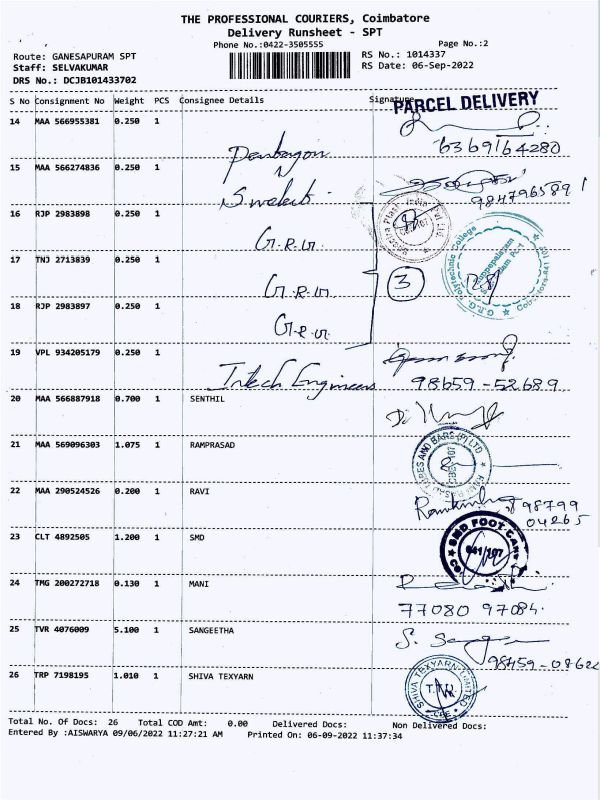 THE PROFESSIONAL COURIERS, Coimbatore
Delivery Runsheet - SPT
Phone No.:0422-3505555 Page No.:2
Route: GANESAPURAM SPT RS No.: 1014337
Staff: SELVAKUMAR RS Date: 06-Sep-2022
DRS No.: DCJB101433702
S No Consignment No Weight PCS Consignee Details Signature
PARCEL DELIVERY
14 MAA 566955381 0.250 1
6369164280
15 MAA 566274836 0.250 1
9847965891
16 RJP 2983898 0.250 1
G.R.G.
17 TNJ 2713839 0.250 1
G.R.G. 3
18 RJP 2983897 0.250 1
G.R.G.
19 VPL 934205179 0.250 1
Intech Engineers 98659-52689
20 MAA 566887918 0.700 1 SENTHIL
21 MAA 569096303 1.075 1 RAMPRASAD
22 MAA 290524526 0.200 1 RAVI
98799
04265
23 CLT 4892505 1.200 1 SMD
SMD FOOT CARE
641 107
24 TMG 200272718 0.130 1 MANI
77080 97084.
25 TVR 4076009 5.100 1 SANGEETHA
98459-08622
26 TRP 7198195 1.010 1 SHIVA TEXYARN
SHIVA TEXYARN LIMITED
CBE
Total No. Of Docs: 26 Total COD Amt: 0.00 Delivered Docs: Non Delivered Docs:
Entered By :AISWARYA 09/06/2022 11:27:21 AM Printed On: 06-09-2022 11:37:34